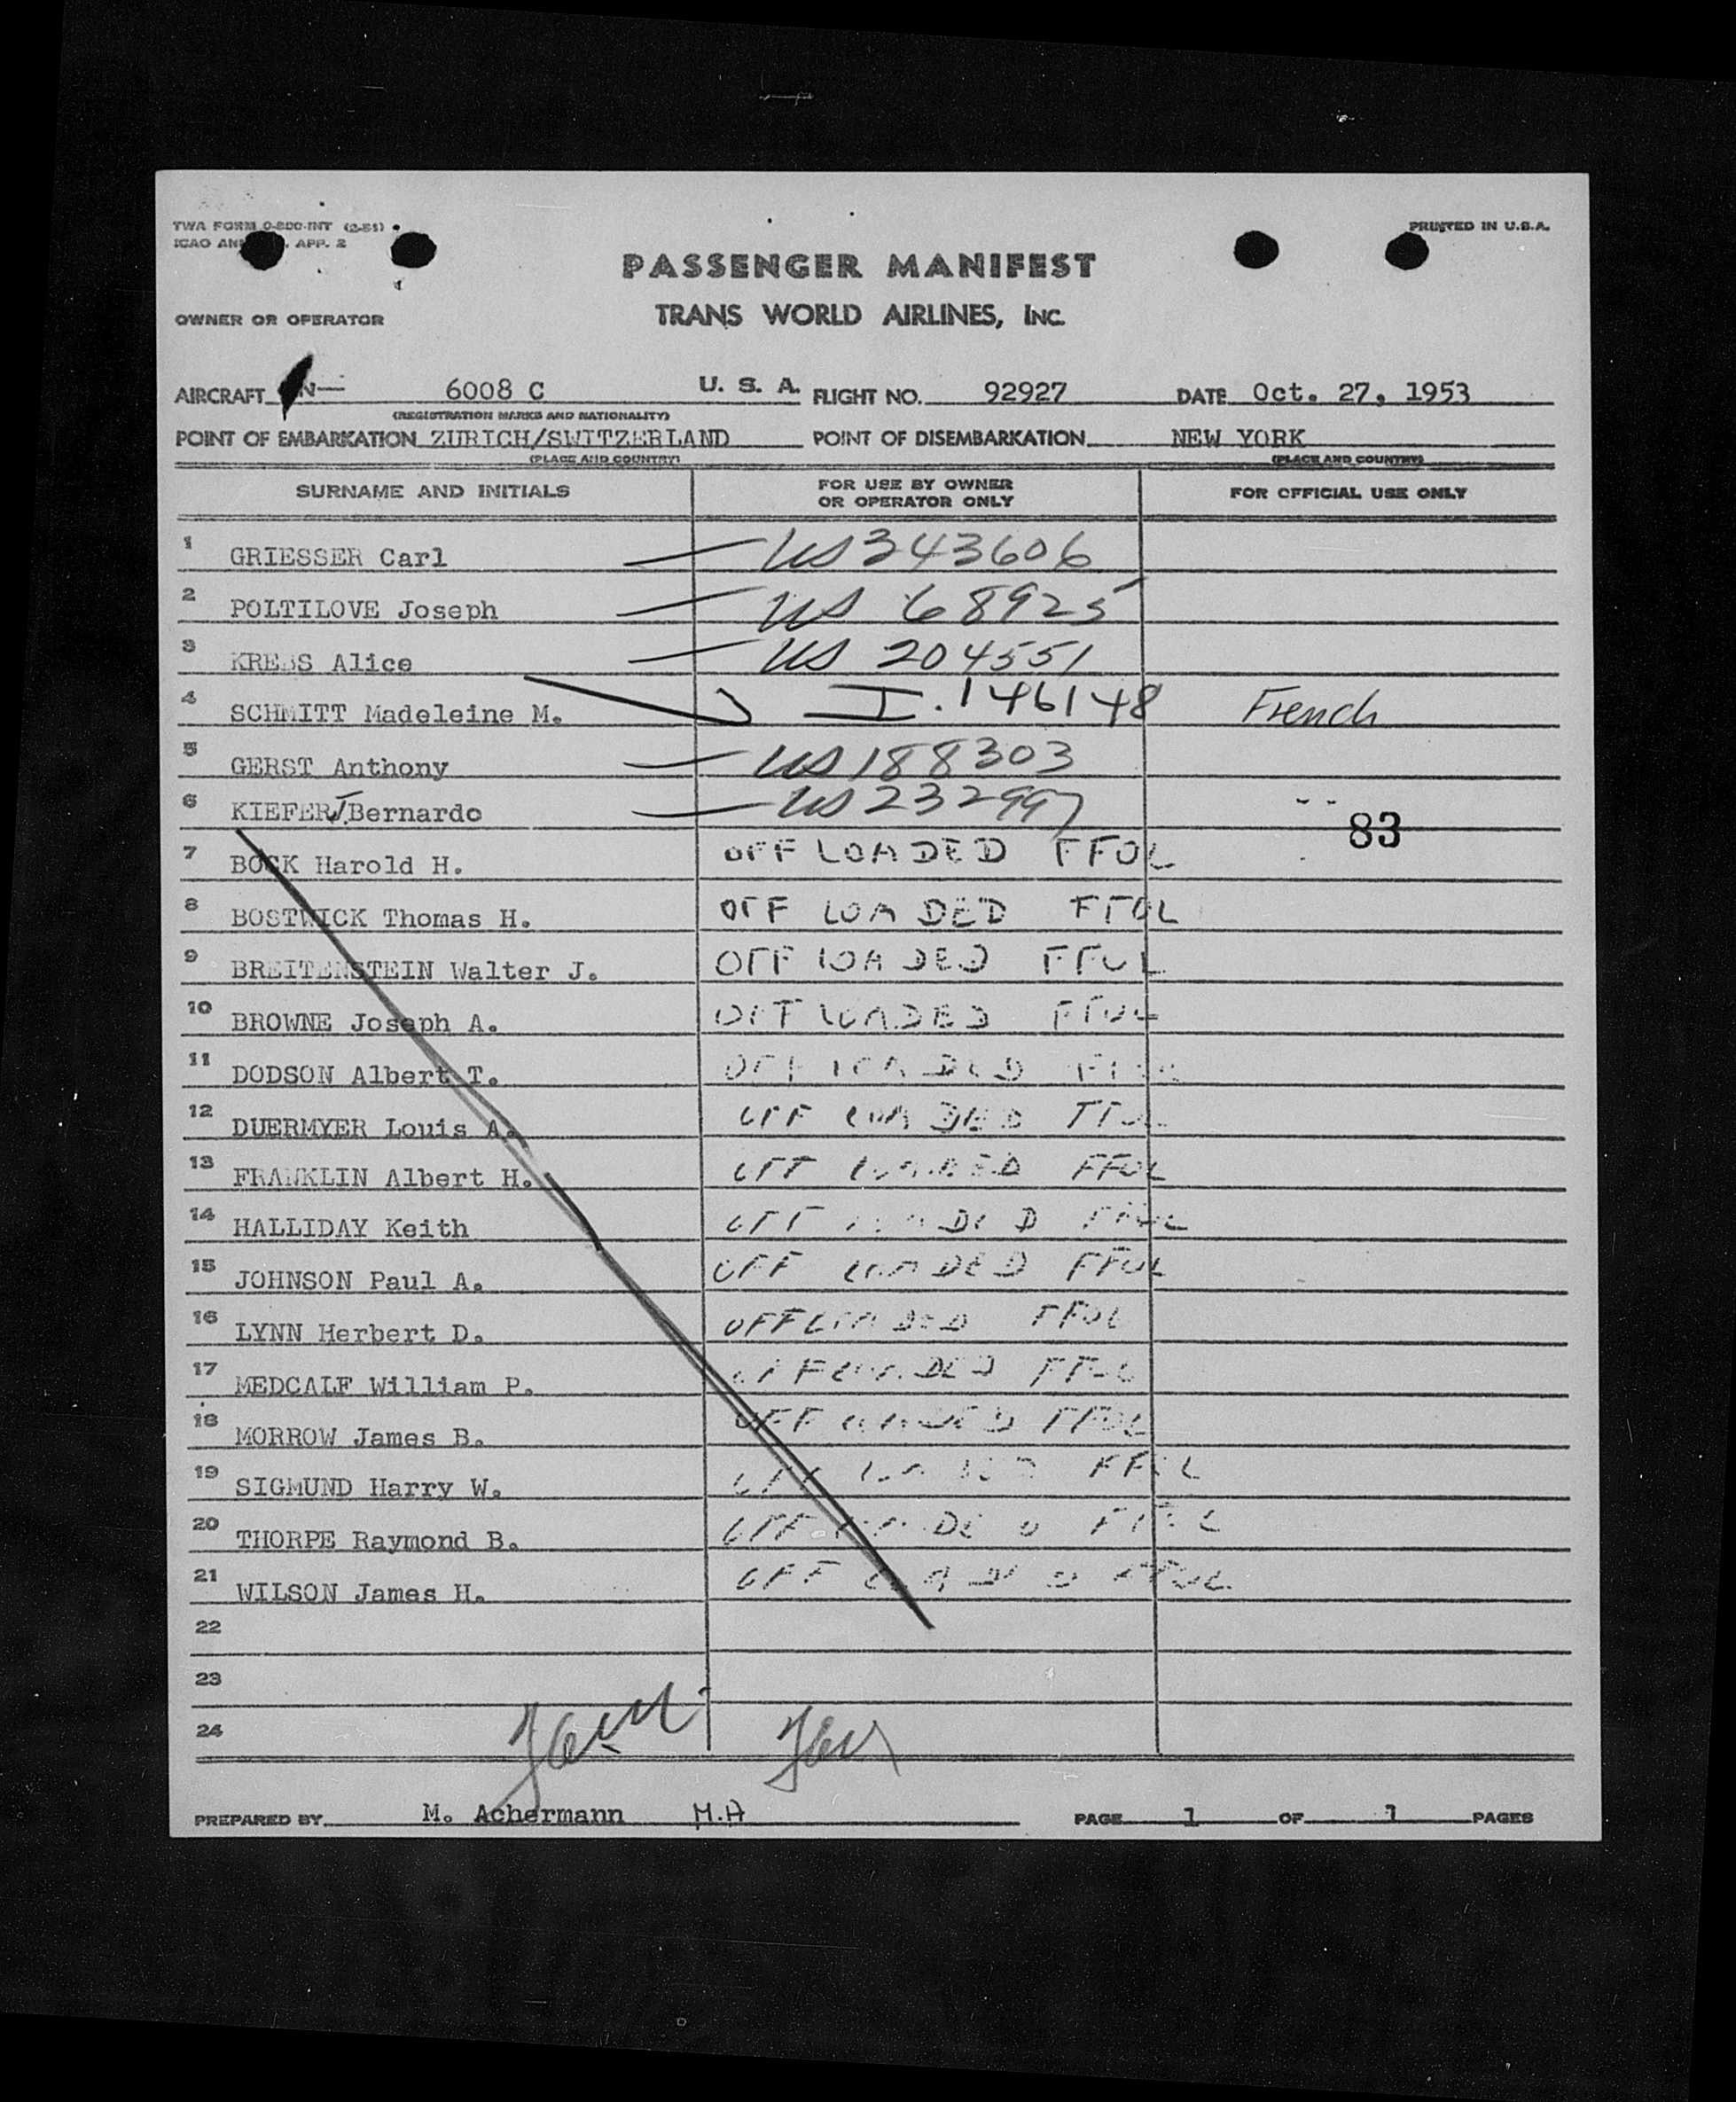 TWA FORM O-800-INT (2-51)
ICAO AN . APP. 2
PRINTED IN U.S.A.
PASSENGER MANIFEST
OWNER OR OPERATOR TRANS WORLD AIRLINES, INC.
AIRCRAFT N— 6008 C U. S. A. FLIGHT NO. 92927 DATE Oct. 27, 1953
(REGISTRATION MARKS AND NATIONALITY)
POINT OF EMBARKATION ZURICH/SWITZERLAND POINT OF DISEMBARKATION NEW YORK
(PLACE AND COUNTRY) (PLACE AND COUNTRY)
SURNAME AND INITIALS FOR USE BY OWNER OR OPERATOR ONLY FOR OFFICIAL USE ONLY
1 GRIESSER Carl US 343606
2 POLTILOVE Joseph US 68925
3 KREBS Alice US 204551
4 SCHMITT Madeleine M. I. 146148 French
5 GERST Anthony US 188303
6 KIEFER J. Bernardo US 232997
83
7 BOCK Harold H. OFF LOADED FFOL
8 BOSTWICK Thomas H. OFF LOADED FFOL
9 BREITENSTEIN Walter J. OFF LOADED FFOL
10 BROWNE Joseph A. OFF LOADED FFOL
11 DODSON Albert T. OFF LOADED FFOL
12 DUERMYER Louis A. OFF LOADED FFOL
13 FRANKLIN Albert H. OFF LOADED FFOL
14 HALLIDAY Keith OFF LOADED FFOL
15 JOHNSON Paul A. OFF LOADED FFOL
16 LYNN Herbert D. OFF LOADED FFOL
17 MEDCALF William P. OFF LOADED FFOL
18 MORROW James B. OFF LOADED FFOL
19 SIGMUND Harry W. OFF LOADED FFOL
20 THORPE Raymond B. OFF LOADED FFOL
21 WILSON James H. OFF LOADED FFOL
22
23
24
PREPARED BY M. Achermann M.A PAGE 1 OF 1 PAGES